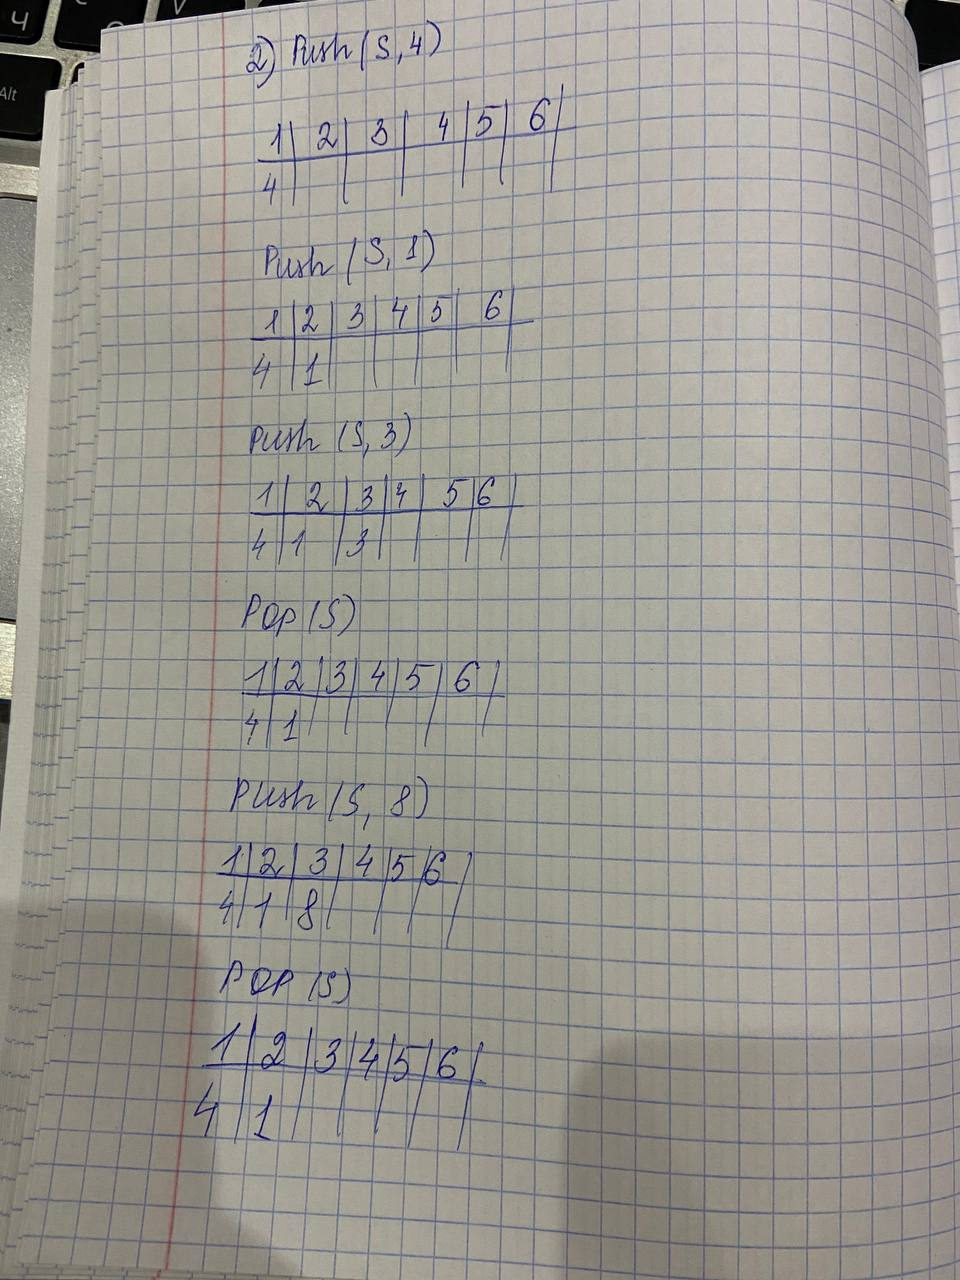 Alt
2) Push (S, 4)
1 | 2 | 3 | 4 | 5 | 6 |
4 | | | | | |
Push (S, 1)
1 | 2 | 3 | 4 | 5 | 6 |
4 | 1 | | | | |
Push (S, 3)
1 | 2 | 3 | 4 | 5 | 6 |
4 | 1 | 3 | | | |
POP (S)
1 | 2 | 3 | 4 | 5 | 6 |
4 | 1 | | | | |
Push (S, 8)
1 | 2 | 3 | 4 | 5 | 6 |
4 | 1 | 8 | | | |
POP (S)
1 | 2 | 3 | 4 | 5 | 6 |
4 | 1 | | | | |